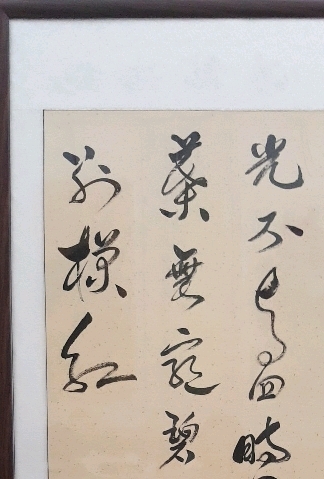 光不與四時
葉無窮碧
別樣紅